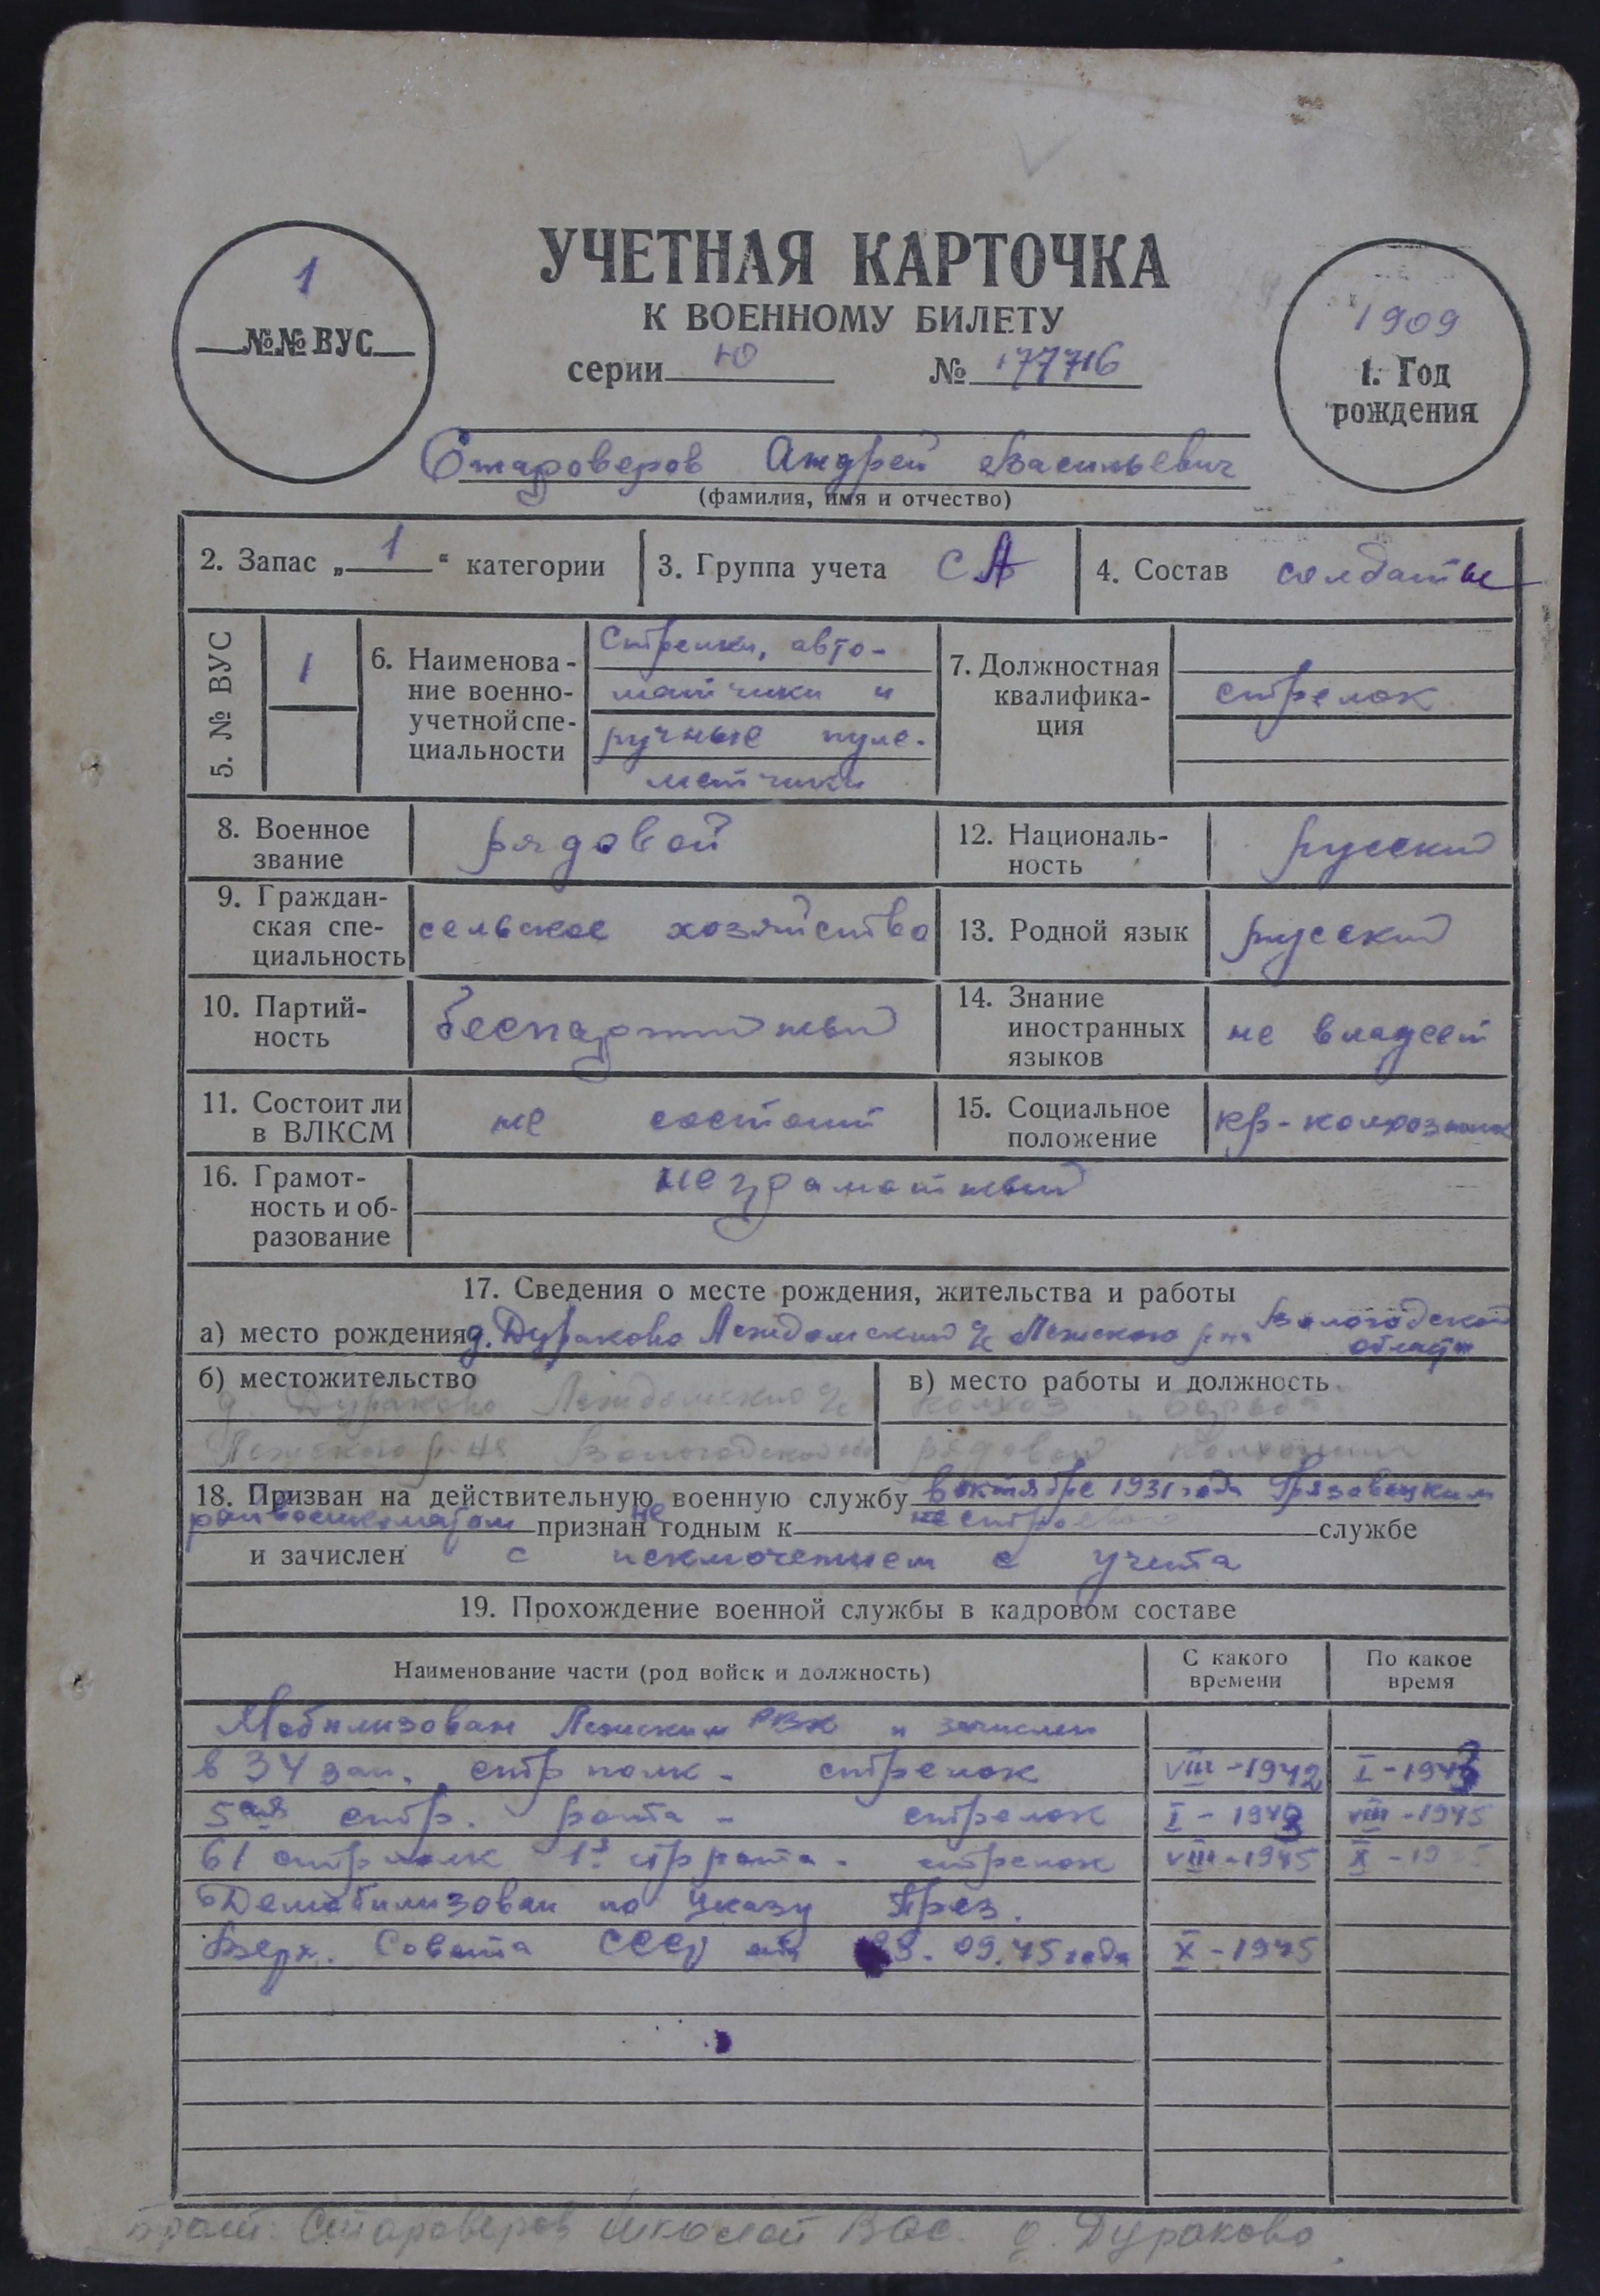 1
№№ ВУС
УЧЕТНАЯ КАРТОЧКА
К ВОЕННОМУ БИЛЕТУ
серии Ю № 177716
1909
1. Год
рождения
Староверов Андрей Васильевич
(фамилия, имя и отчество)
2. Запас „ 1 “ категории
3. Группа учета СА
4. Состав солдаты
5. № ВУС
1
6. Наименова-
ние военно-
учетной спе-
циальности
Стрелки, авто-
матчики и
ручные пуле-
метчики
7. Должностная
квалифика-
ция
стрелок
8. Военное
звание
рядовой
12. Националь-
ность
русский
9. Граждан-
ская спе-
циальность
сельское хозяйство
13. Родной язык
русский
10. Партий-
ность
беспартийный
14. Знание
иностранных
языков
не владеет
11. Состоит ли
в ВЛКСМ
не состоит
15. Социальное
положение
кр-колхозник
16. Грамот-
ность и об-
разование
неграмотный
17. Сведения о месте рождения, жительства и работы
а) место рождения д. Дураково Леждомский с/с Лежского р-на Вологодской
области
б) местожительство
д. Дураково Леждомского с/с
Лежского р-на Вологодской обл
в) место работы и должность
колхоз „Борьба
рядовой колхозник
18. Призван на действительную военную службу в октябре 1931 года Грязовецким
райвоенкоматом признан не годным к службе
и зачислен с исключением с учета
19. Прохождение военной службы в кадровом составе
Наименование части (род войск и должность)
С какого
времени
По какое
время
Мобилизован Лежским РВК и зачислен
в 34 зап. стр полк - стрелок VIII-1942 I-1943
5ая стр. рота - стрелок I-1943 VIII-1945
61 стр полк 1я стр рота - стрелок VIII-1945 X-1945
Демобилизован по Указу През.
Верх. Совета СССР от 09.45 года X-1945
брат: Староверов Николай Вас. д. Дураково